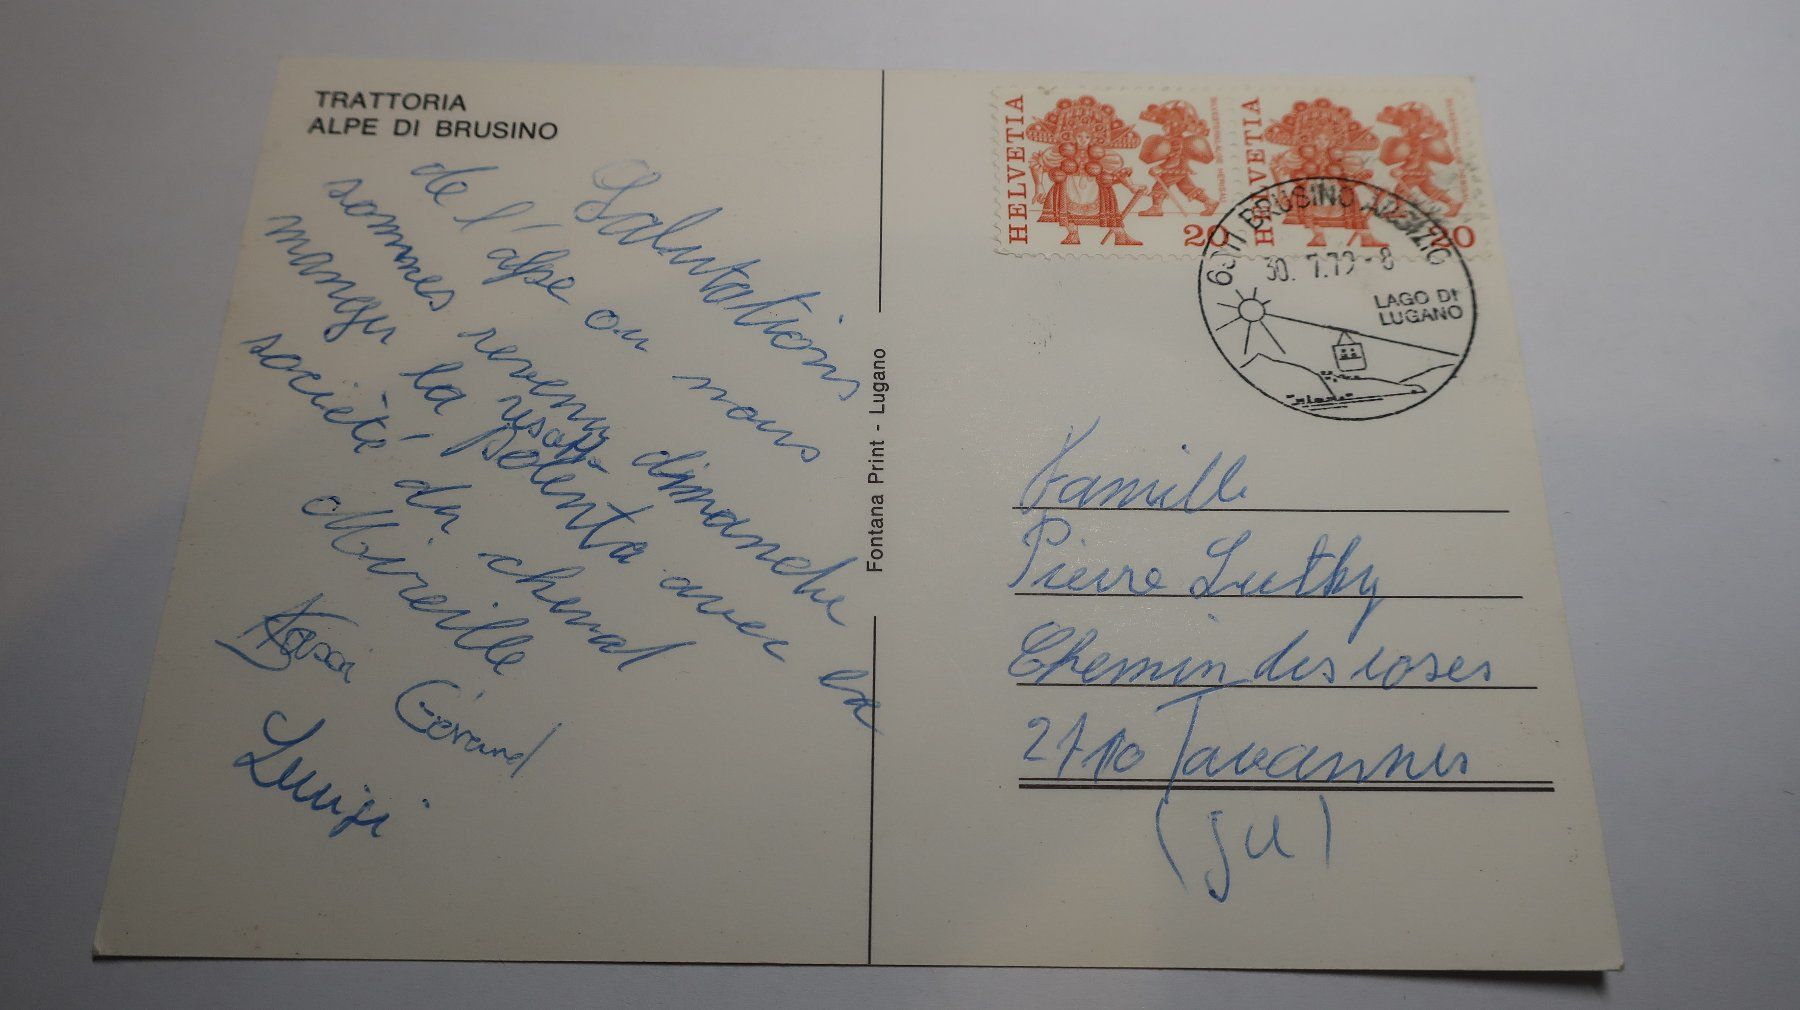 TRATTORIA
ALPE DI BRUSINO
Salutations
de l'alpe ou nous
sommes revenus dimanche
manger la polenta avec la
société du cheval
Mireille
Gérard
Luigi
Fontana Print - Lugano
HELVETIA
20
HELVETIA
20
BRUSINO ARSIZIO
30. 7.79 - 8
LAGO DI
LUGANO
Famille
Pierre Luthy
Chemin des roses
2710 Tavannes
(JU)